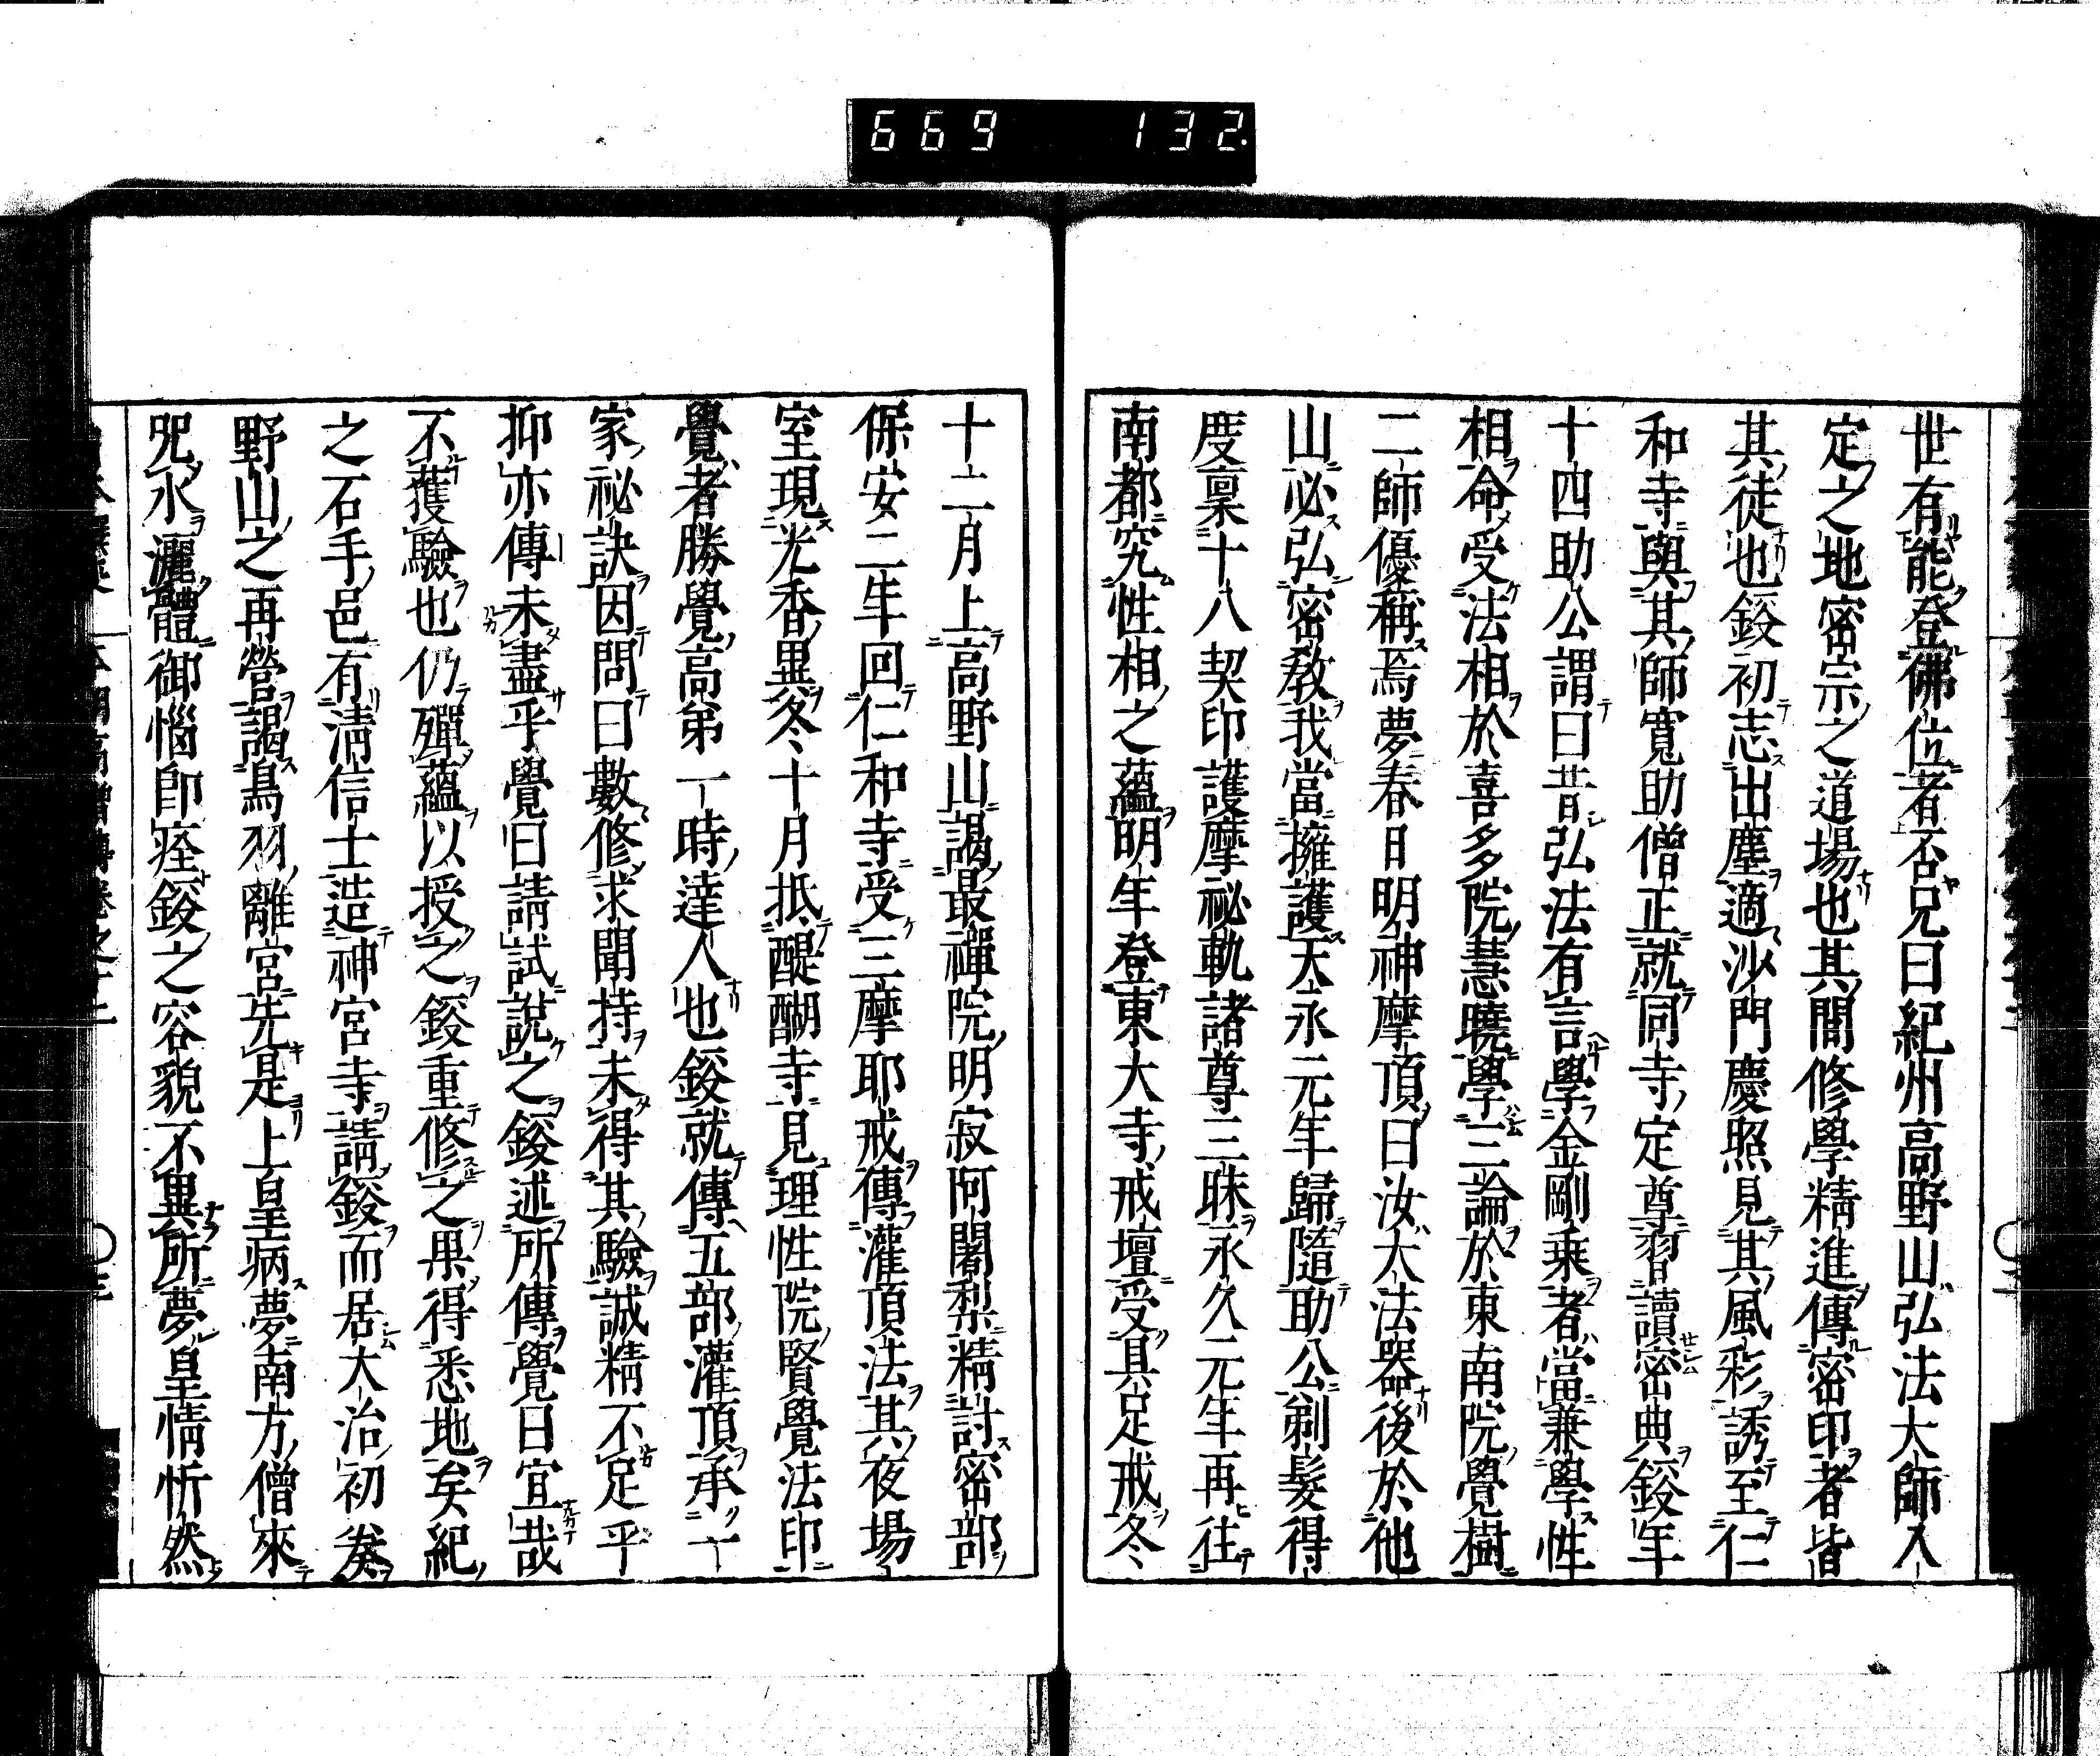 669 132
世有能登佛位者否兄曰紀州高野山弘法大師入
定之地密宗之道場也其間修學精進傳密印者皆
其徒也鋑初志出塵適沙門慶照見其風彩誘至仁
和寺與其師寬助僧正就同寺定尊習讀密典鋑年
十四助公謂曰昔弘法有言學金剛乘者當兼學性
相命受法相於喜多院慧曉學三論於東南院覺樹
二師優稱焉夢春日明神摩頂曰汝大法器後於他
山必弘密教我當擁護天永元年歸隨助公剃髮得
度稟十八契印護摩祕軌諸尊三昧永久元年再往
南都究性相之蘊明年登東大寺戒壇受具足戒冬
十二月上高野山謁最禪院明寂阿闍梨精討密部
保安二年回仁和寺受三摩耶戒傳灌頂法其夜場
室現光香異冬十月抵醍醐寺見理性院賢覺法印
覺者勝覺高弟一時達人也鋑就傳五部灌頂承一
家祕訣因問曰數修求聞持未得其驗誠精不足乎
抑亦傳未盡乎覺曰請試說之鋑述所傳覺曰宜哉
不獲驗也仍殫蘊以授之鋑重修之果得悉地矣紀
之石手邑有清信士造神宮寺請鋑而居大治初奏
野山之再營謁鳥羽離宮先是上皇病夢南方僧來
呪水灑體御惱卽痊鋑之容貌不異所夢皇情忻然